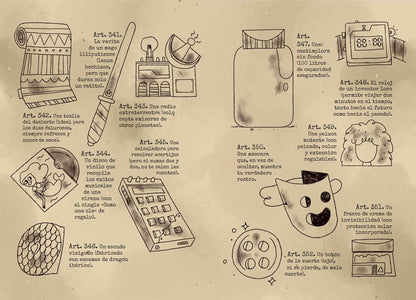 Art. 341.
La varita
de un mago
liliputiense
(lanza
hechizos,
pero que
duran solo
un ratito).
Art. 342. Una toalla
del desierto (ideal para
los días calurosos,
siempre refresca y
nunca se seca).
Art. 343. Una radio
extraterrestre (solo
capta emisoras de
otros planetas).
Art. 344.
Un disco de
vinilo que
recopila
los éxitos
musicales
de una
sirena (con
el single «Como
una ola» de
regalo).
Art. 345.
Una calculadora
para resolver
acertijos
(pero si sumas dos y
dos, no te salen las
cuentas).
Art. 346. Un escudo
visigodo (fabricado
con escamas de dragón
ibérico).
Art.
347.
Una
cantimplora
sin fondo
(100 litros
de capacidad
asegurados).
Art. 348. El reloj
de un inventor loco
(permite viajar dos
minutos en el tiempo,
tanto hacia el futuro
como hacia el pasado).
Art. 349.
Una peluca
mutante (con
peinado,
color y
extensión
regulables).
Art. 350.
Una máscara
que, en vez
de ocultar,
muestra
tu verdadero
rostro.
Art. 351. Un
frasco de crema de
invisibilidad (con
protección solar
incorporada).
Art. 352. Un botón
de la suerte (ojo,
si se pierde, da mala
suerte).